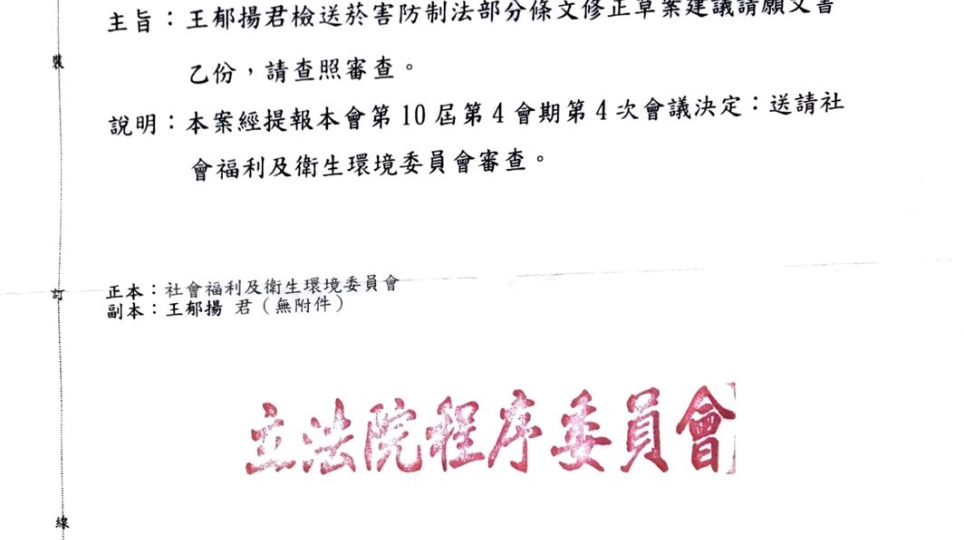 主旨：王郁揚君檢送菸害防制法部分條文修正草案建議請願文書
裝
乙份，請查照審查。
說明：本案經提報本會第10屆第4會期第4次會議決定：送請社
會福利及衛生環境委員會審查。
正本：社會福利及衛生環境委員會
訂
副本：王郁揚 君（無附件）
立法院程序委員會
線